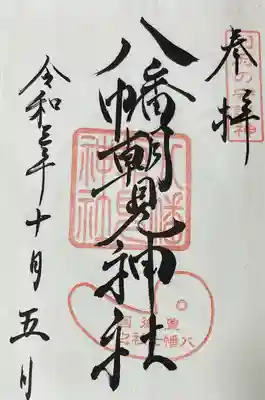 奉拝
八幡朝見神社
令和三年十月五日
八幡朝見神社